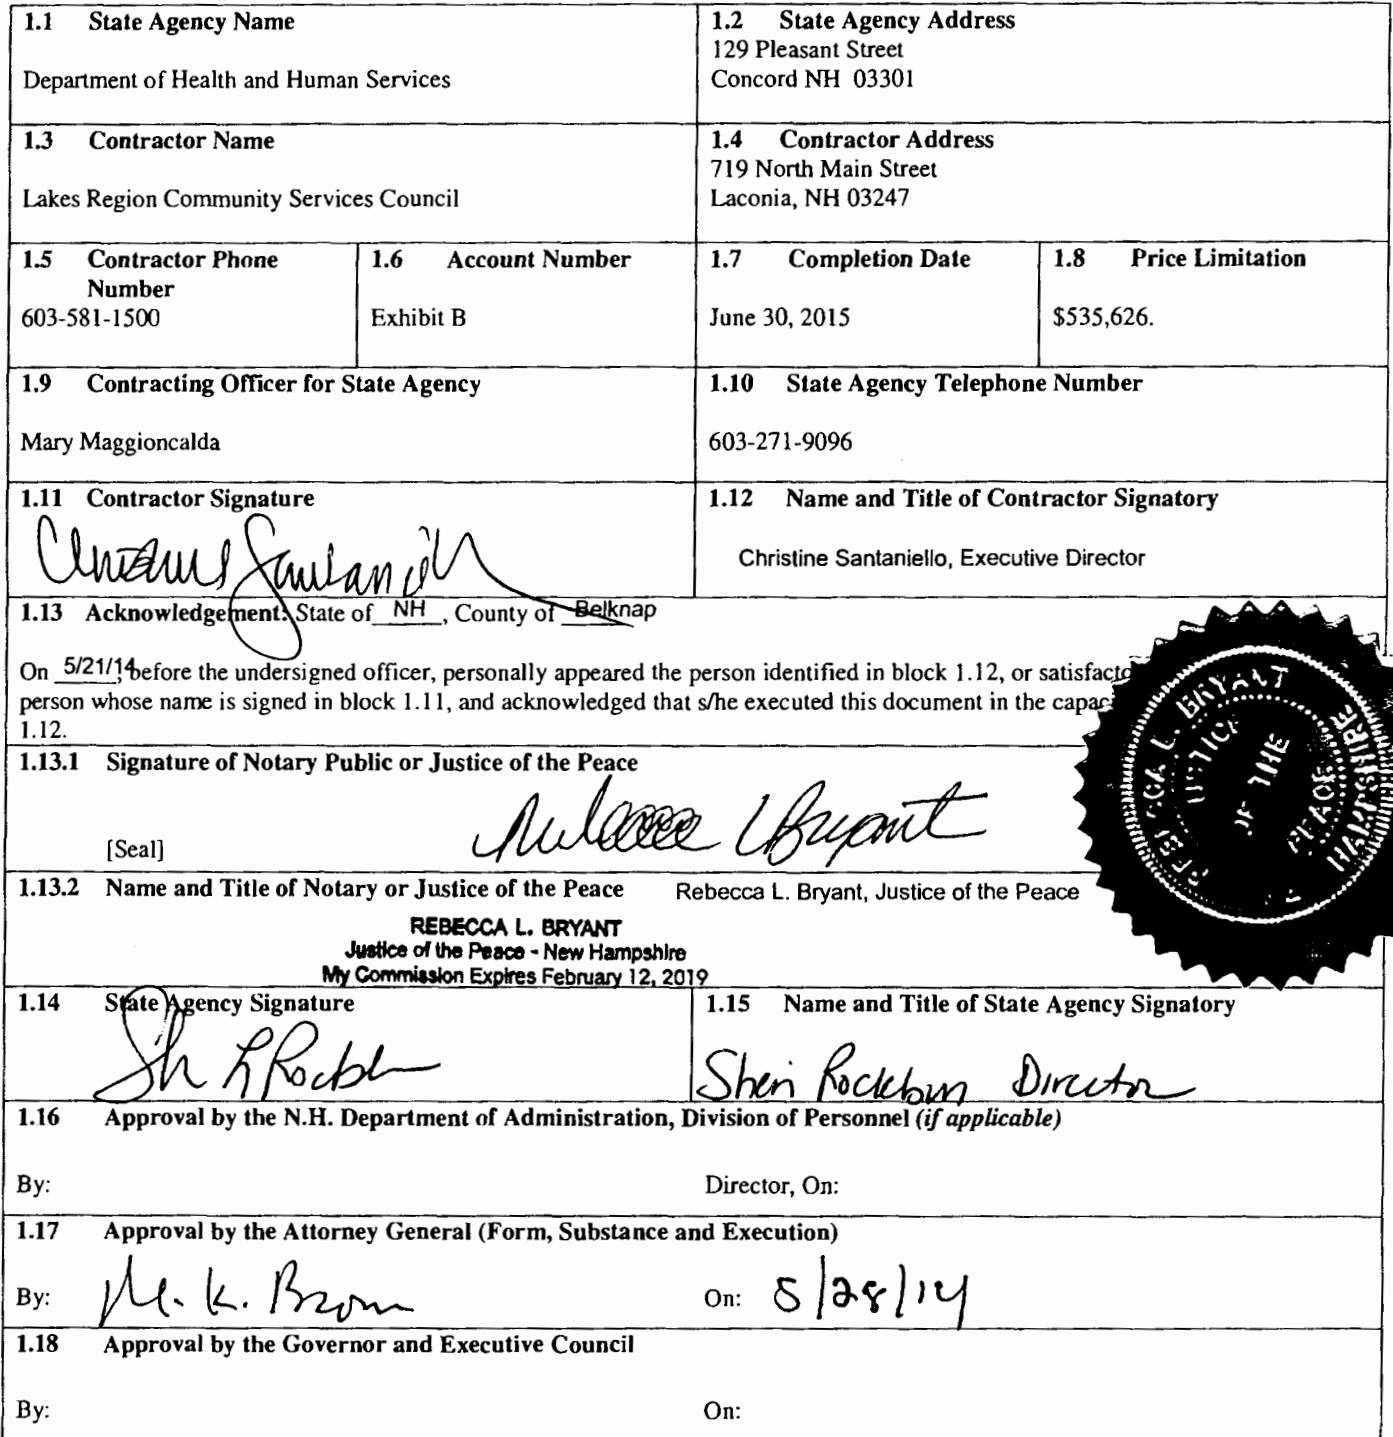 1.1 State Agency Name
Department of Health and Human Services
1.2 State Agency Address
129 Pleasant Street
Concord NH 03301
1.3 Contractor Name
Lakes Region Community Services Council
1.4 Contractor Address
719 North Main Street
Laconia, NH 03247
1.5 Contractor Phone
Number
603-581-1500
1.6 Account Number
Exhibit B
1.7 Completion Date
June 30, 2015
1.8 Price Limitation
$535,626.
1.9 Contracting Officer for State Agency
Mary Maggioncalda
1.10 State Agency Telephone Number
603-271-9096
1.11 Contractor Signature
1.12 Name and Title of Contractor Signatory
Christine Santaniello, Executive Director
1.13 Acknowledgement: State of NH, County of Belknap
On 5/21/14, before the undersigned officer, personally appeared the person identified in block 1.12, or satisfacto
person whose name is signed in block 1.11, and acknowledged that s/he executed this document in the capac
1.12.
1.13.1 Signature of Notary Public or Justice of the Peace
Bryant
[Seal]
L. BRYANT
OF THE
PEACE
1.13.2 Name and Title of Notary or Justice of the Peace Rebecca L. Bryant, Justice of the Peace
REBECCA L. BRYANT
Justice of the Peace - New Hampshire
My Commission Expires February 12, 2019
1.14 State Agency Signature
1.15 Name and Title of State Agency Signatory
Sheri Rockburn Director
1.16 Approval by the N.H. Department of Administration, Division of Personnel (if applicable)
By:
Director, On:
1.17 Approval by the Attorney General (Form, Substance and Execution)
By: M. K. Brown
On: 5/28/14
1.18 Approval by the Governor and Executive Council
By:
On: